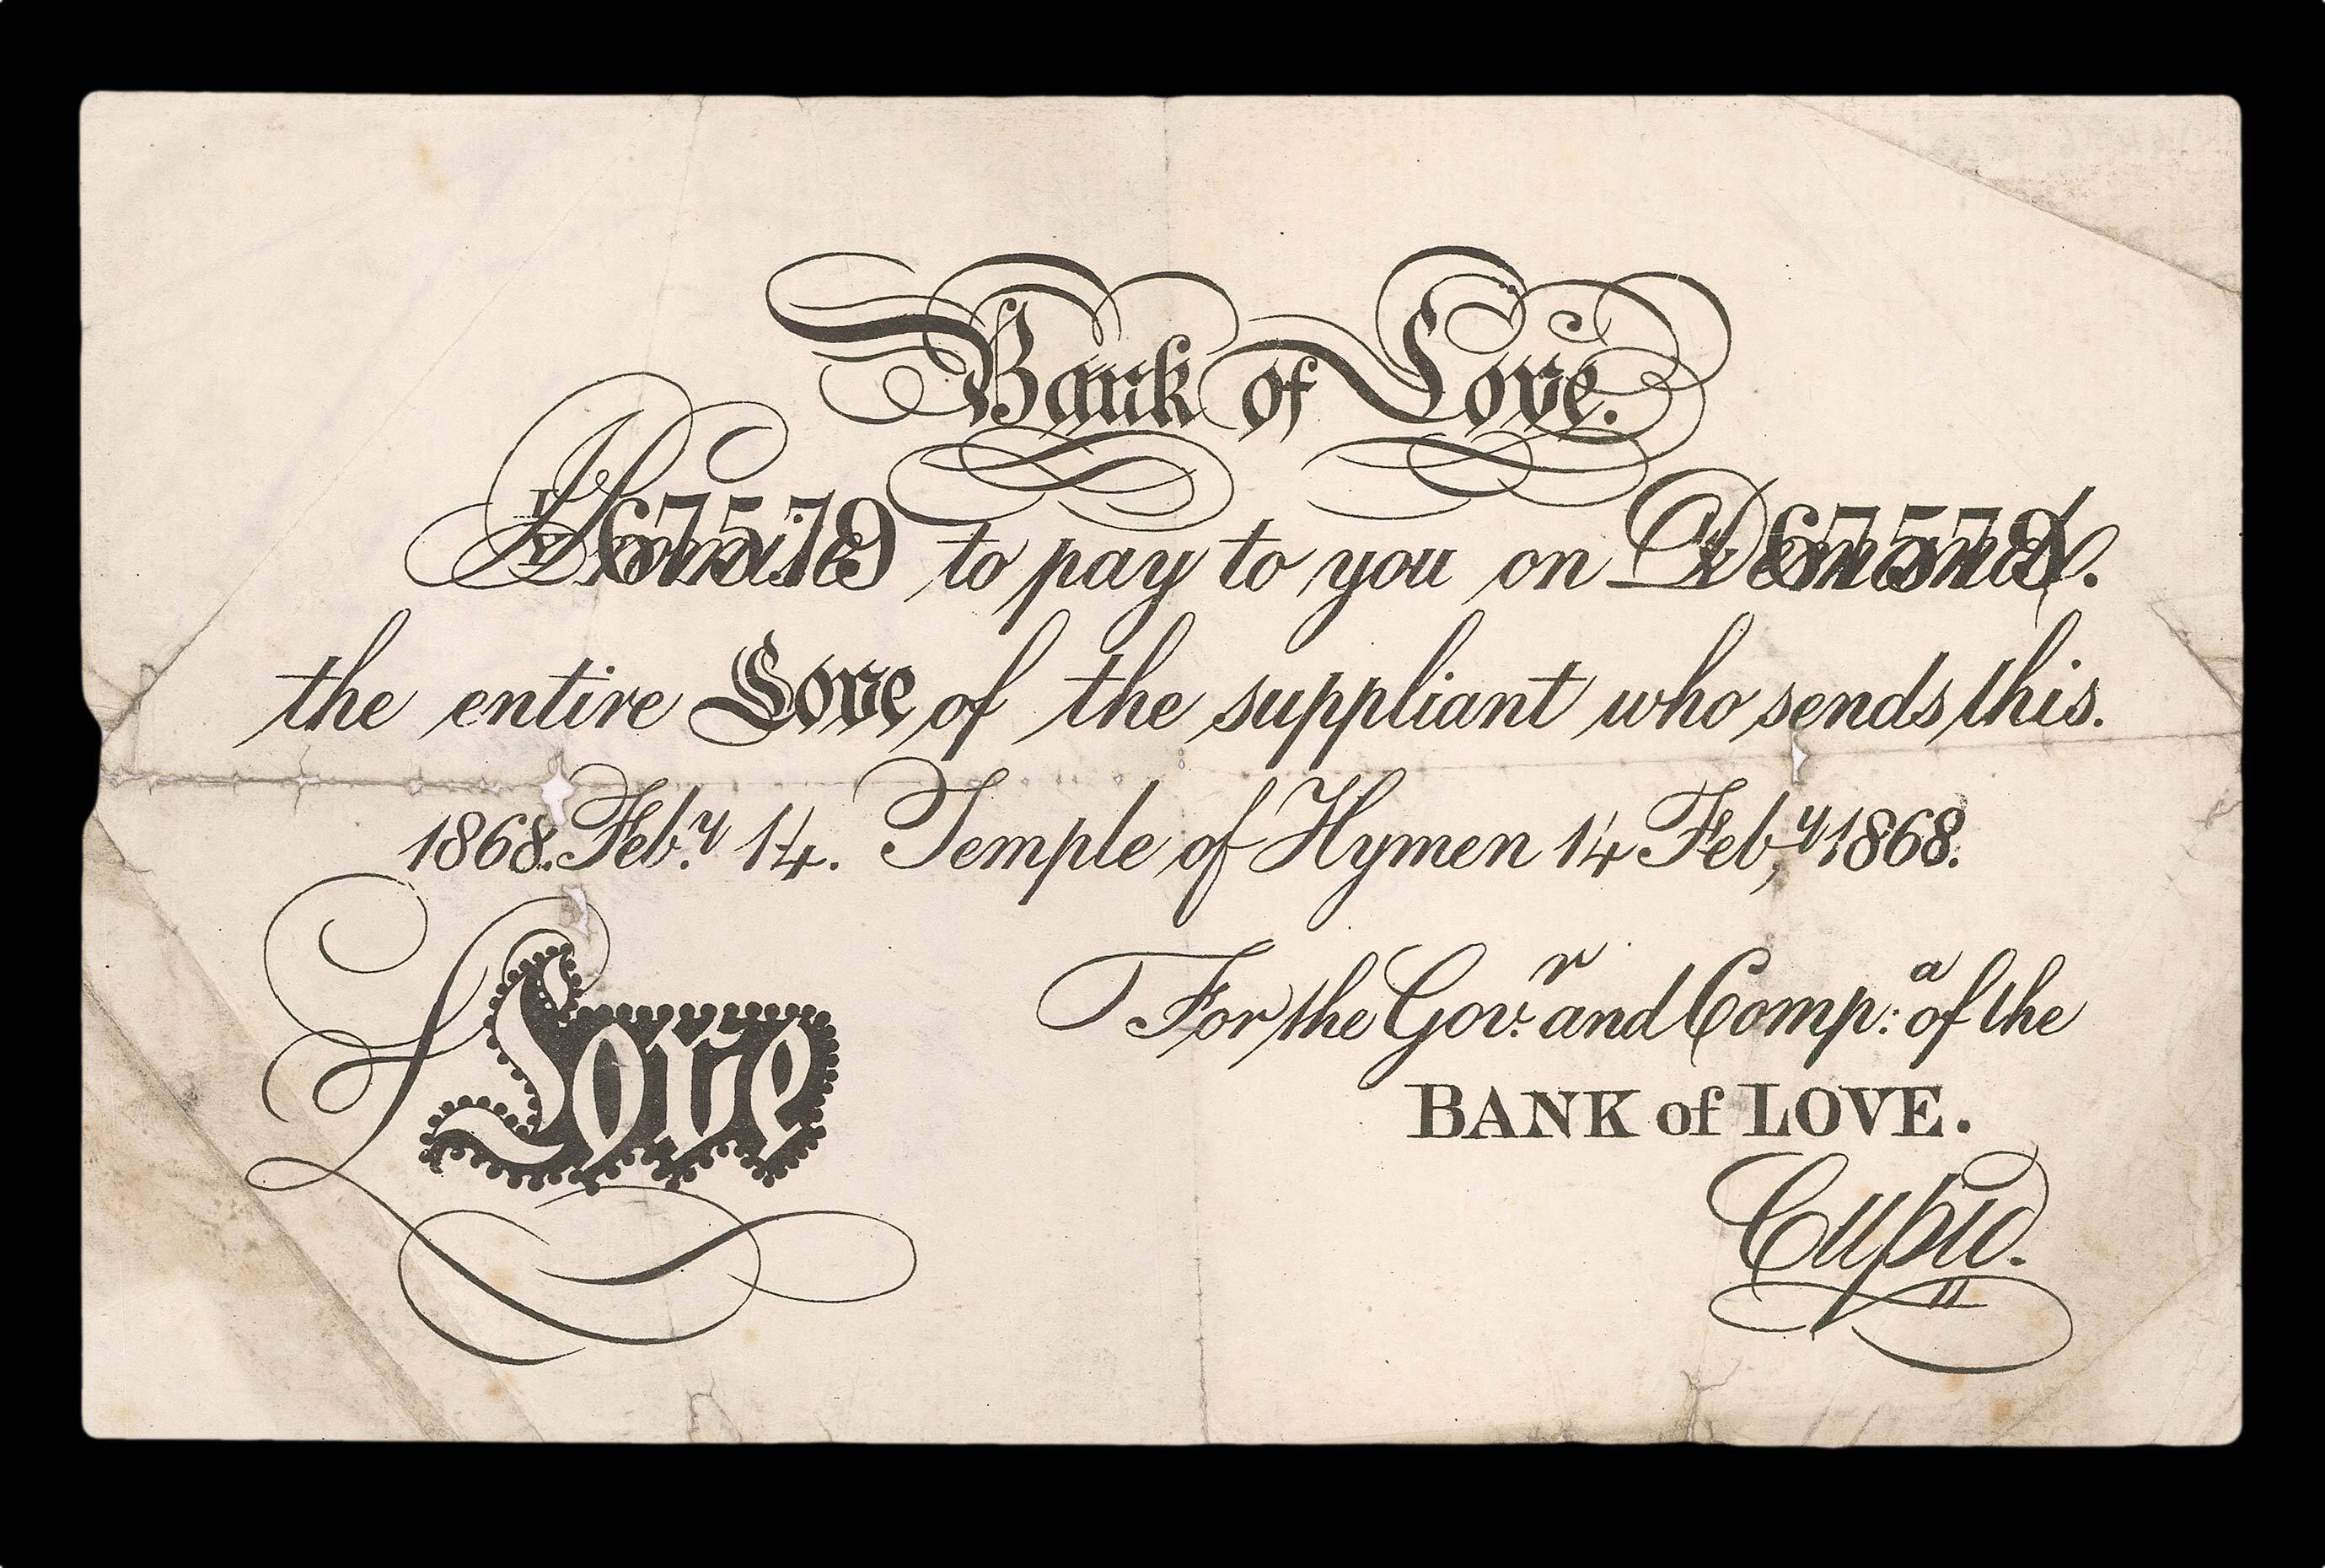 Bank of Love.
67579 67579
I Promise to pay to you on Demand.
the entire Love of the suppliant who sends this.
1868. Feb.y 14. Temple of Hymen 14 Feb,y 1868.
For the Gov:r and Comp:a of the
BANK of LOVE.
Love
Cupid.